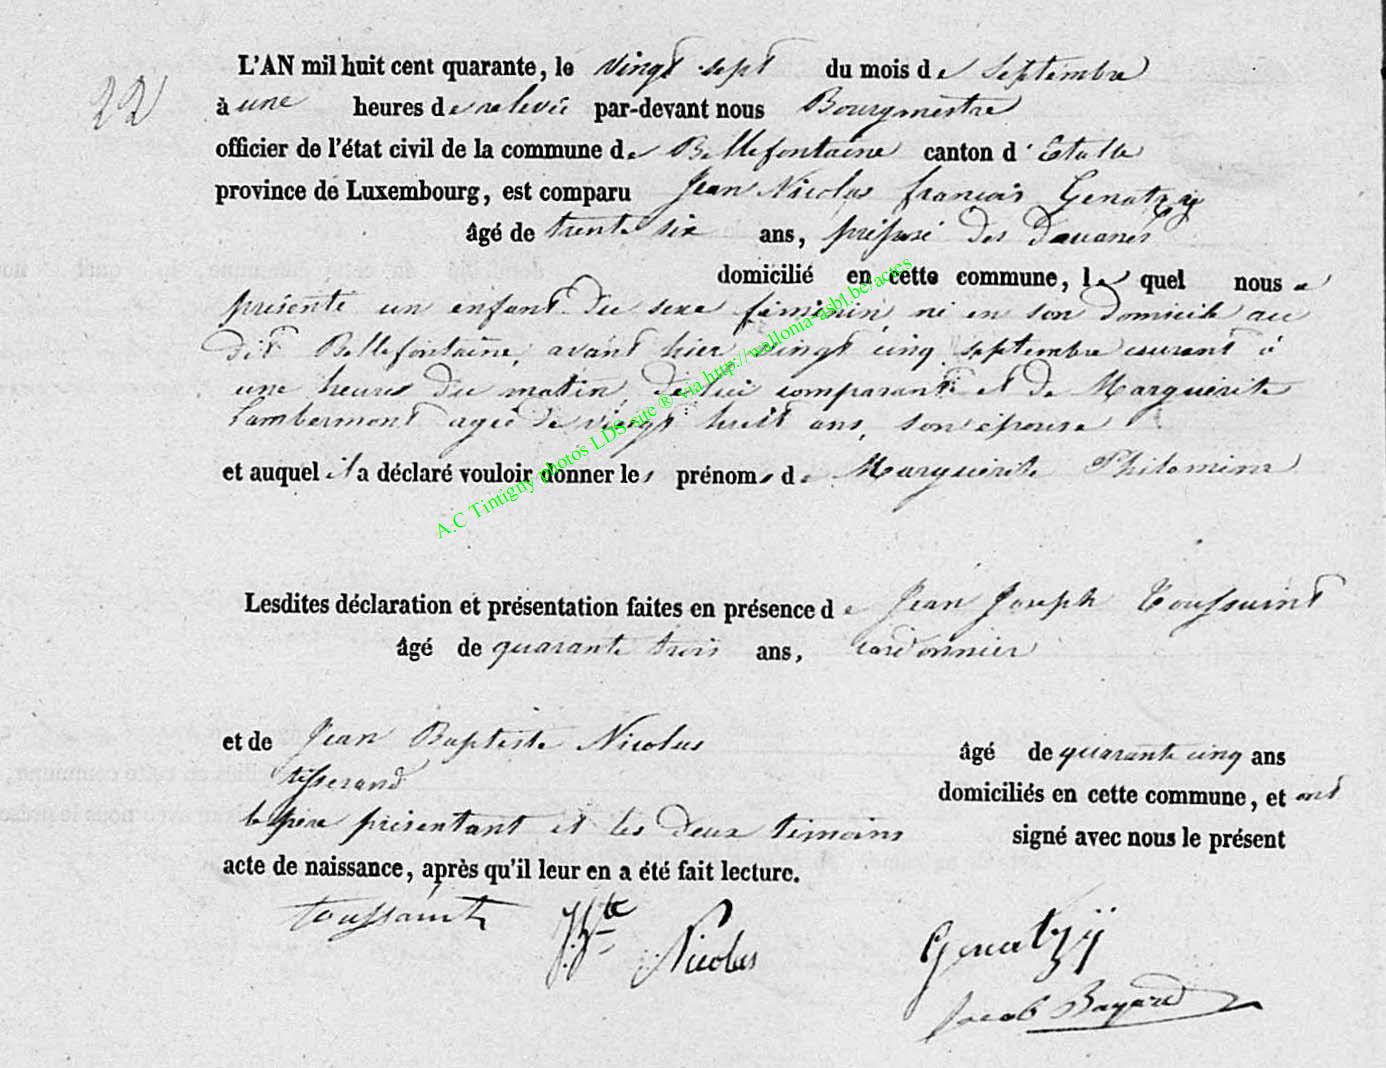 22
L'AN mil huit cent quarante, le vingt sept du mois de septembre
à une heures de relevée par-devant nous Bourgmestre
officier de l'état civil de la commune de Bellefontaine canton d' Etalle
province de Luxembourg, est comparu Jean Nicolas françois Genatzÿ
âgé de trente six ans, préposé des Douanes
domicilié en cette commune, le quel nous a
présenté un enfant du sexe féminin né en son domicile au
dit Bellefontaine, avant hier vingt cinq septembre courant à
une heures du matin, de lui comparant et de Marguérite
Lambermont agée de vingt huit ans, son épouse
et auquel il a déclaré vouloir donner les prénoms de Marguérite Philomine
A.C Tintigny photos LDS site ® via http://wallonia-asbl.be/actes
Lesdites déclaration et présentation faites en présence de Jean Joseph Toussaint
âgé de quarante trois ans, cordonnier
et de Jean Baptiste Nicolas âgé de quarante cinq ans
tisserand domiciliés en cette commune, et ont
le père présentant et les deux témoins signé avec nous le présent
acte de naissance, après qu'il leur en a été fait lecture.
toussaint J. Bte Nicolas Genatzÿ
Jacob Bayard